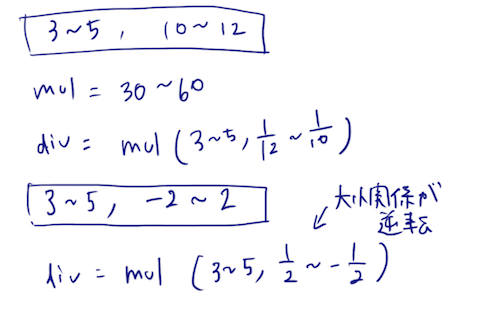 3~5, 10~12
mul = 30~60
div = mul (3~5, 1/12 ~ 1/10)
3~5, -2~2
大小関係が
逆転
div = mul (3~5, 1/2 ~ -1/2)